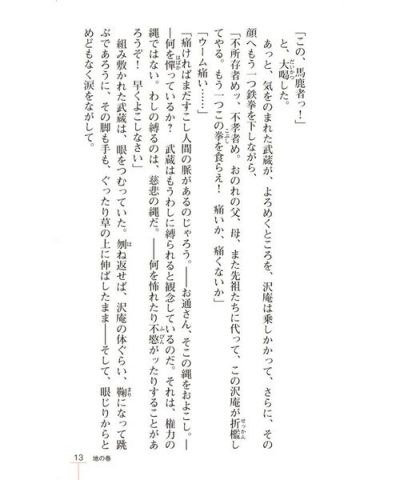 「この、馬鹿者っ！」
と、大喝した。
あっと、気をのまれた武蔵が、よろめくところを、沢庵は乗しかかって、さらに、その
顔へもう一つ鉄拳を下しながら、
「不所存者めッ、不孝者め。おのれの父、母、また先祖たちに代って、この沢庵が折檻し
てやる。もう一つこの拳を食らえ！　痛いか、痛くないか」
「ウーム痛い……」
「痛ければまだすこし人間の脈があるのじゃろう。――お通さん、そこの縄をおよこし。―
―何を憚っているか？　武蔵はもうわしに縛られると観念しているのだ。それは、権力の
縄ではない。わしの縛るのは、慈悲の縄だ。――何を怖れたり不愍がッたりすることがあ
ろうぞ！　早くよこしなさい」
組み敷かれた武蔵は、眼をつむっていた。刎ね返せば、沢庵の体ぐらい、鞠になって跳
ぶであろうに、その脚も手も、ぐったり草の上に伸ばしたまま――そして、眼じりからと
めどもなく涙をながして。
13 地の巻